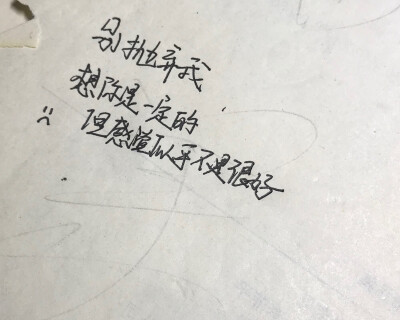 别抛弃我
想你是一定的
但感觉似乎不是很好